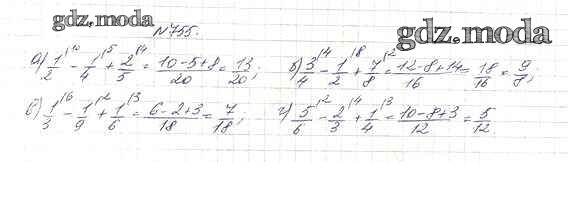 gdz.moda
gdz.moda
№755.
а) 1/2 |10 - 1/4 |5 + 2/5 |4 = 10-5+8/20 = 13/20; б) 3/4 |4 - 1/2 |8 + 7/8 |2 = 12-8+14/16 = 18/16 = 9/8;
в) 1/3 |6 - 1/9 |2 + 1/6 |3 = 6-2+3/18 = 7/18; г) 5/6 |2 - 2/3 |4 + 1/4 |3 = 10-8+3/12 = 5/12.